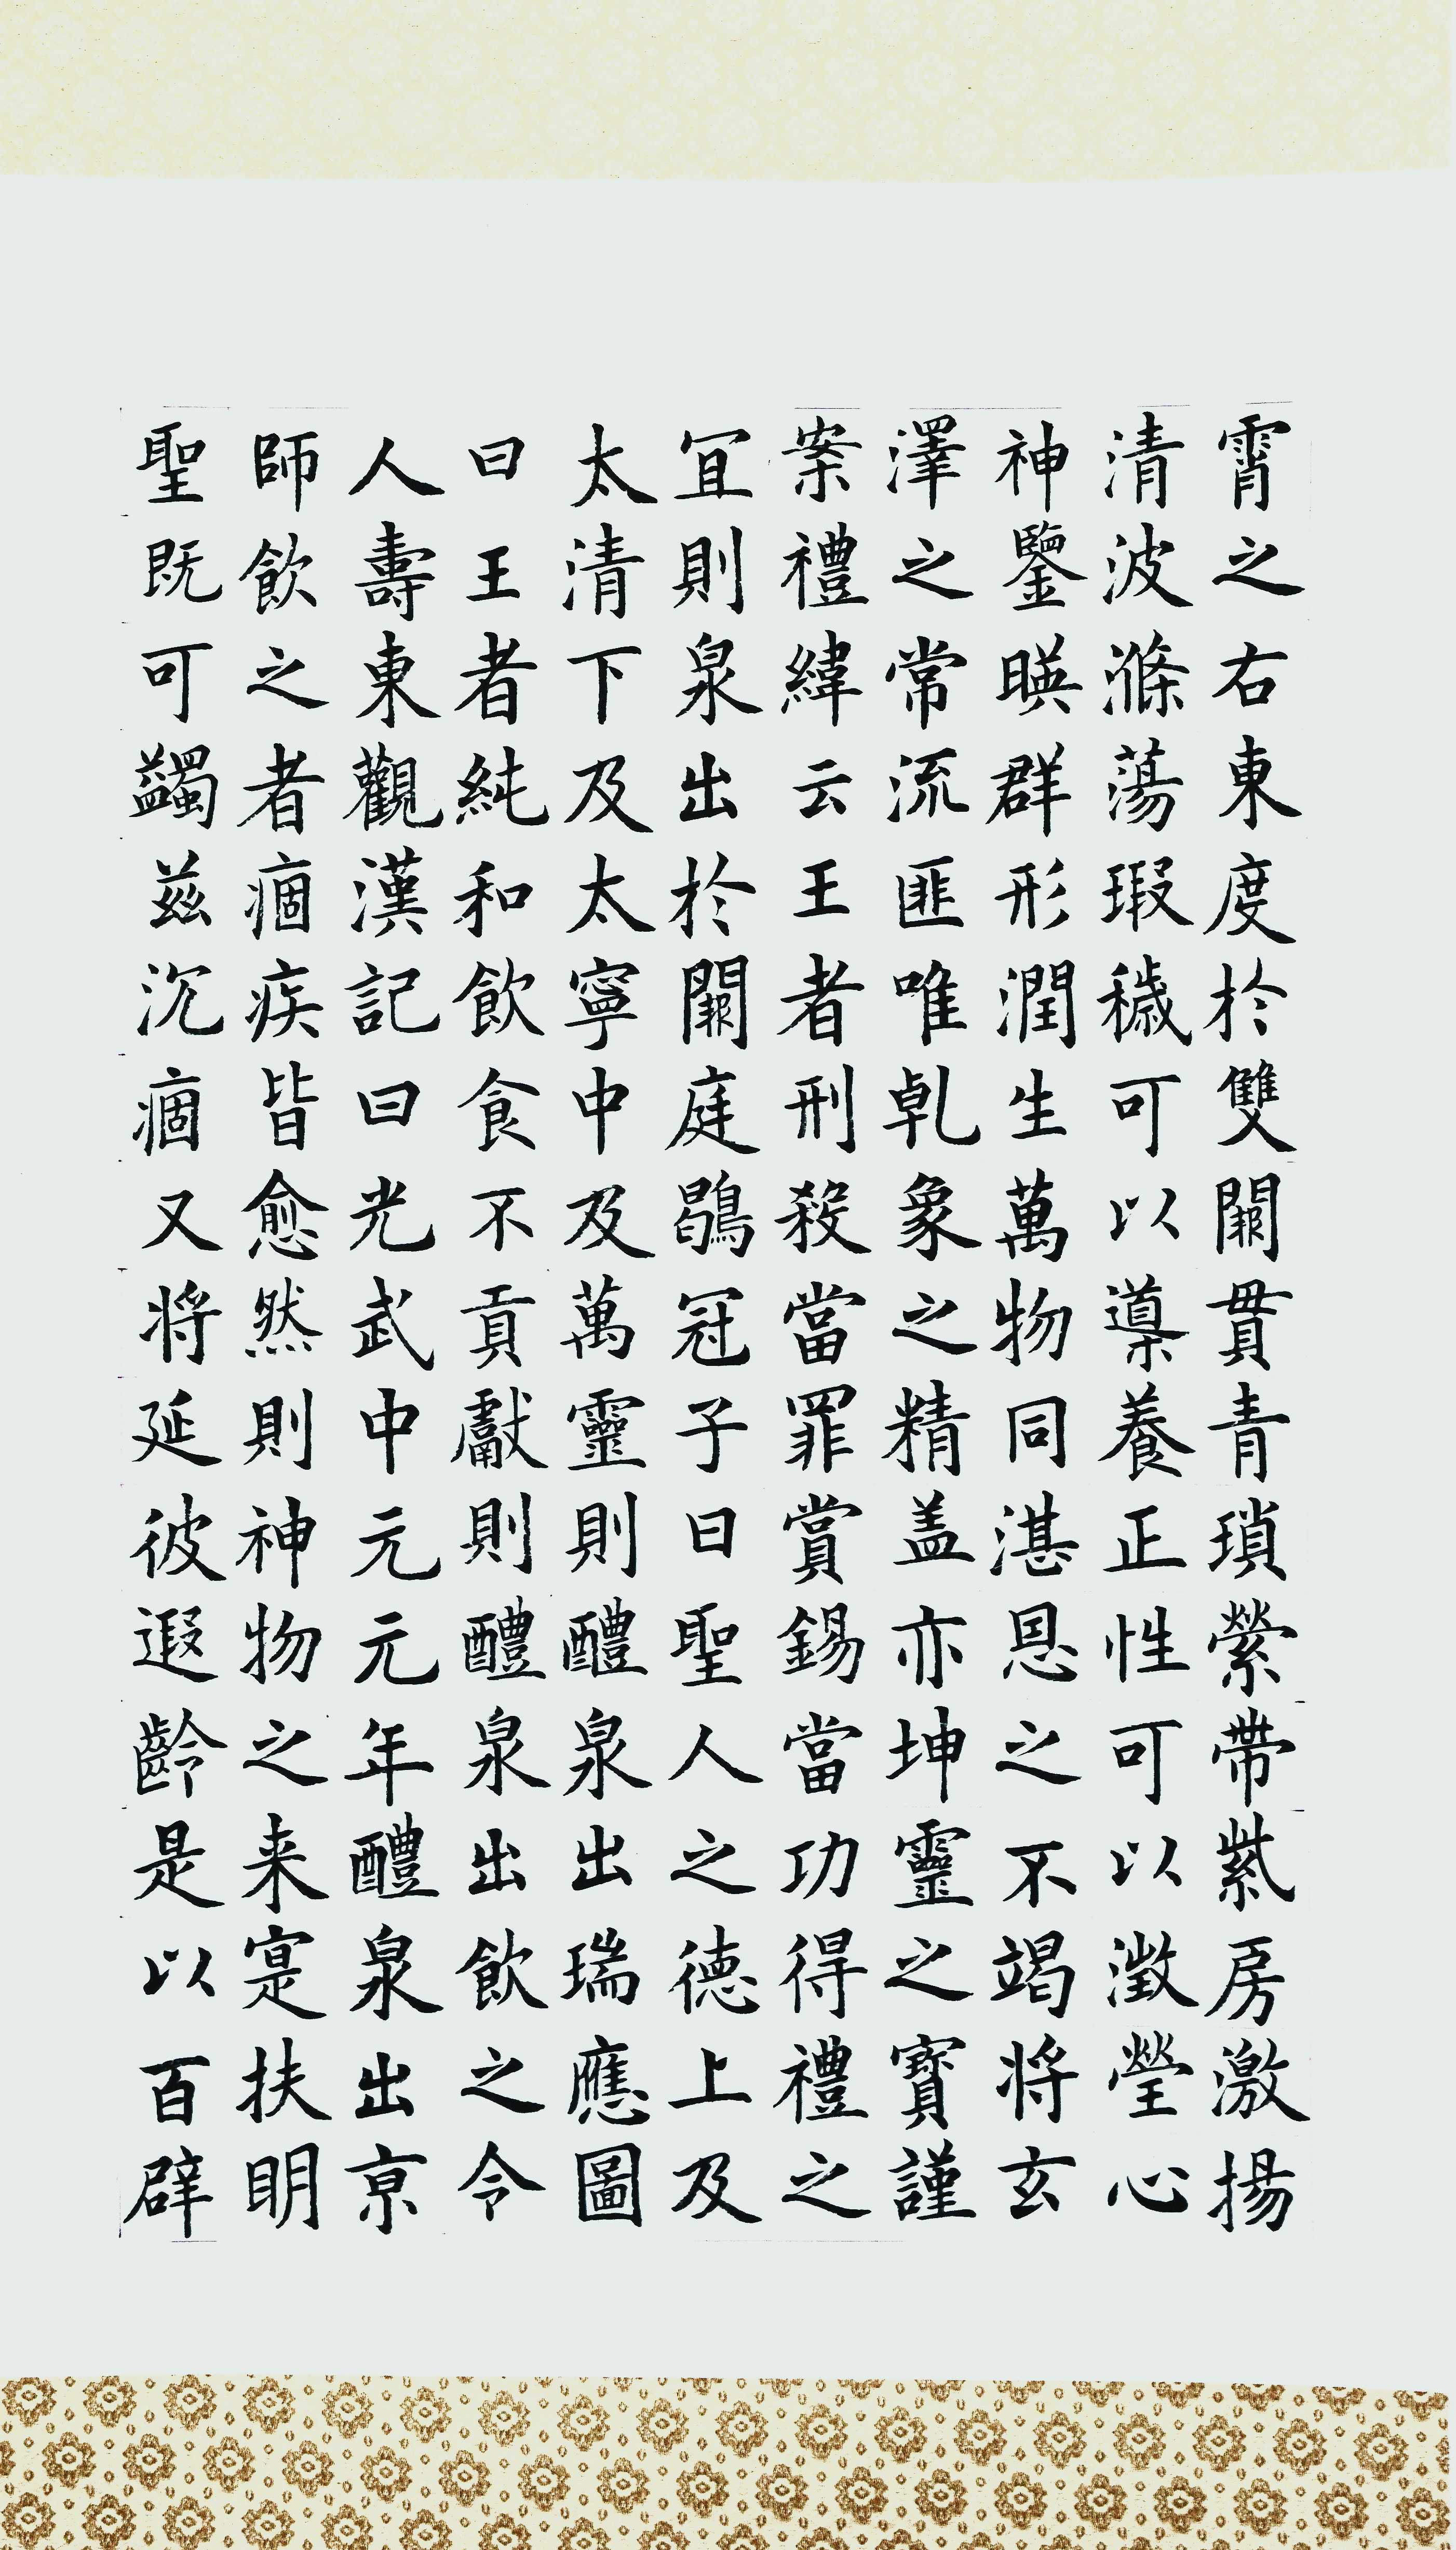 霄之右東度於雙闕貫青瑣縈帶紫房激揚
清波滌蕩瑕穢可以導養正性可以澂瑩心
神鑒暎群形潤生萬物同湛恩之不竭將玄
澤之常流匪唯乹象之精盖亦坤靈之寳謹
案禮緯云王者刑殺當罪賞錫當功得禮之
冝則泉出於闕庭鶡冠子曰聖人之德上及
太清下及太寧中及萬靈則醴泉出瑞應圖
曰王者純和飲食不貢獻則醴泉出飲之令
人壽東觀漢記曰光武中元元年醴泉出京
師飲之者痼疾皆愈然則神物之来寔扶明
聖既可蠲兹沉痼又将延彼遐齡是以百辟